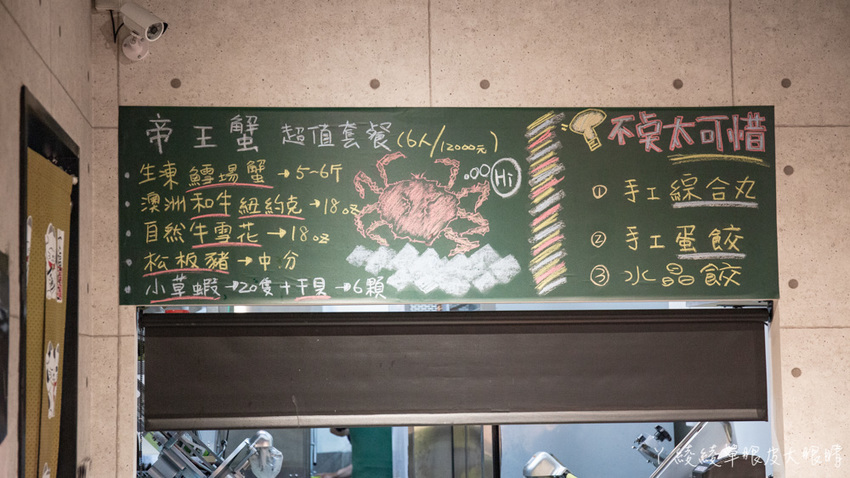 帝王蟹 超值套餐(6人/12000元)
Hi
・生凍鱈場蟹→5~6斤
・澳洲和牛紐約克→18oz
・自然牛雪花→18oz
・松板豬→中.分
・小草蝦→20隻+干貝→6顆
不点太可惜
① 手工綜合丸
② 手工蛋餃
③ 水晶餃
ㄚ綾綾單眼皮大眼睛